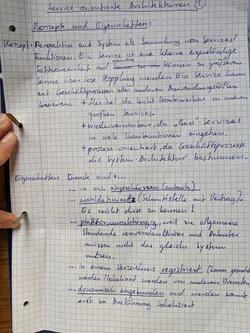 Service orientierte Architekturen 1
Konzept und Eigenschaften:
Konzept: Perspektive auf System als Sammlung von Services/
Funktionen. Ein Service ist eine kleine eigenständige
Softwareeinheit und können zu größeren
Services über lose Kopplung werden. Ein Service kann
auf Geschäftsprozesse oder anderen
basieren. + flexibel, da leicht kombinierbar zu anderen
großen Services.
+ wiederverwendbar, da „Basis" Services
in viele Kombinationen eingehen.
+ prozessorientiert, da Geschäftsprozesse
die System-Architektur bestimmen.
Eigenschaften: Dienste sind...
... in sich abgeschlossen (autark)
... wohldefinierte Schnittstelle mit Vertrag
Es reicht diese zu kennen!
... plattformunabhängig, weil sie allgemeine
Standards verwenden. Nutzer und Anbieter
müssen nicht das gleiche System
nutzen.
... in einem Verzeichnis registriert (kann
werden) lokalisiert werden von anderen
... dynamisch eingebunden und werden somit
erst bei Ausführung lokalisiert